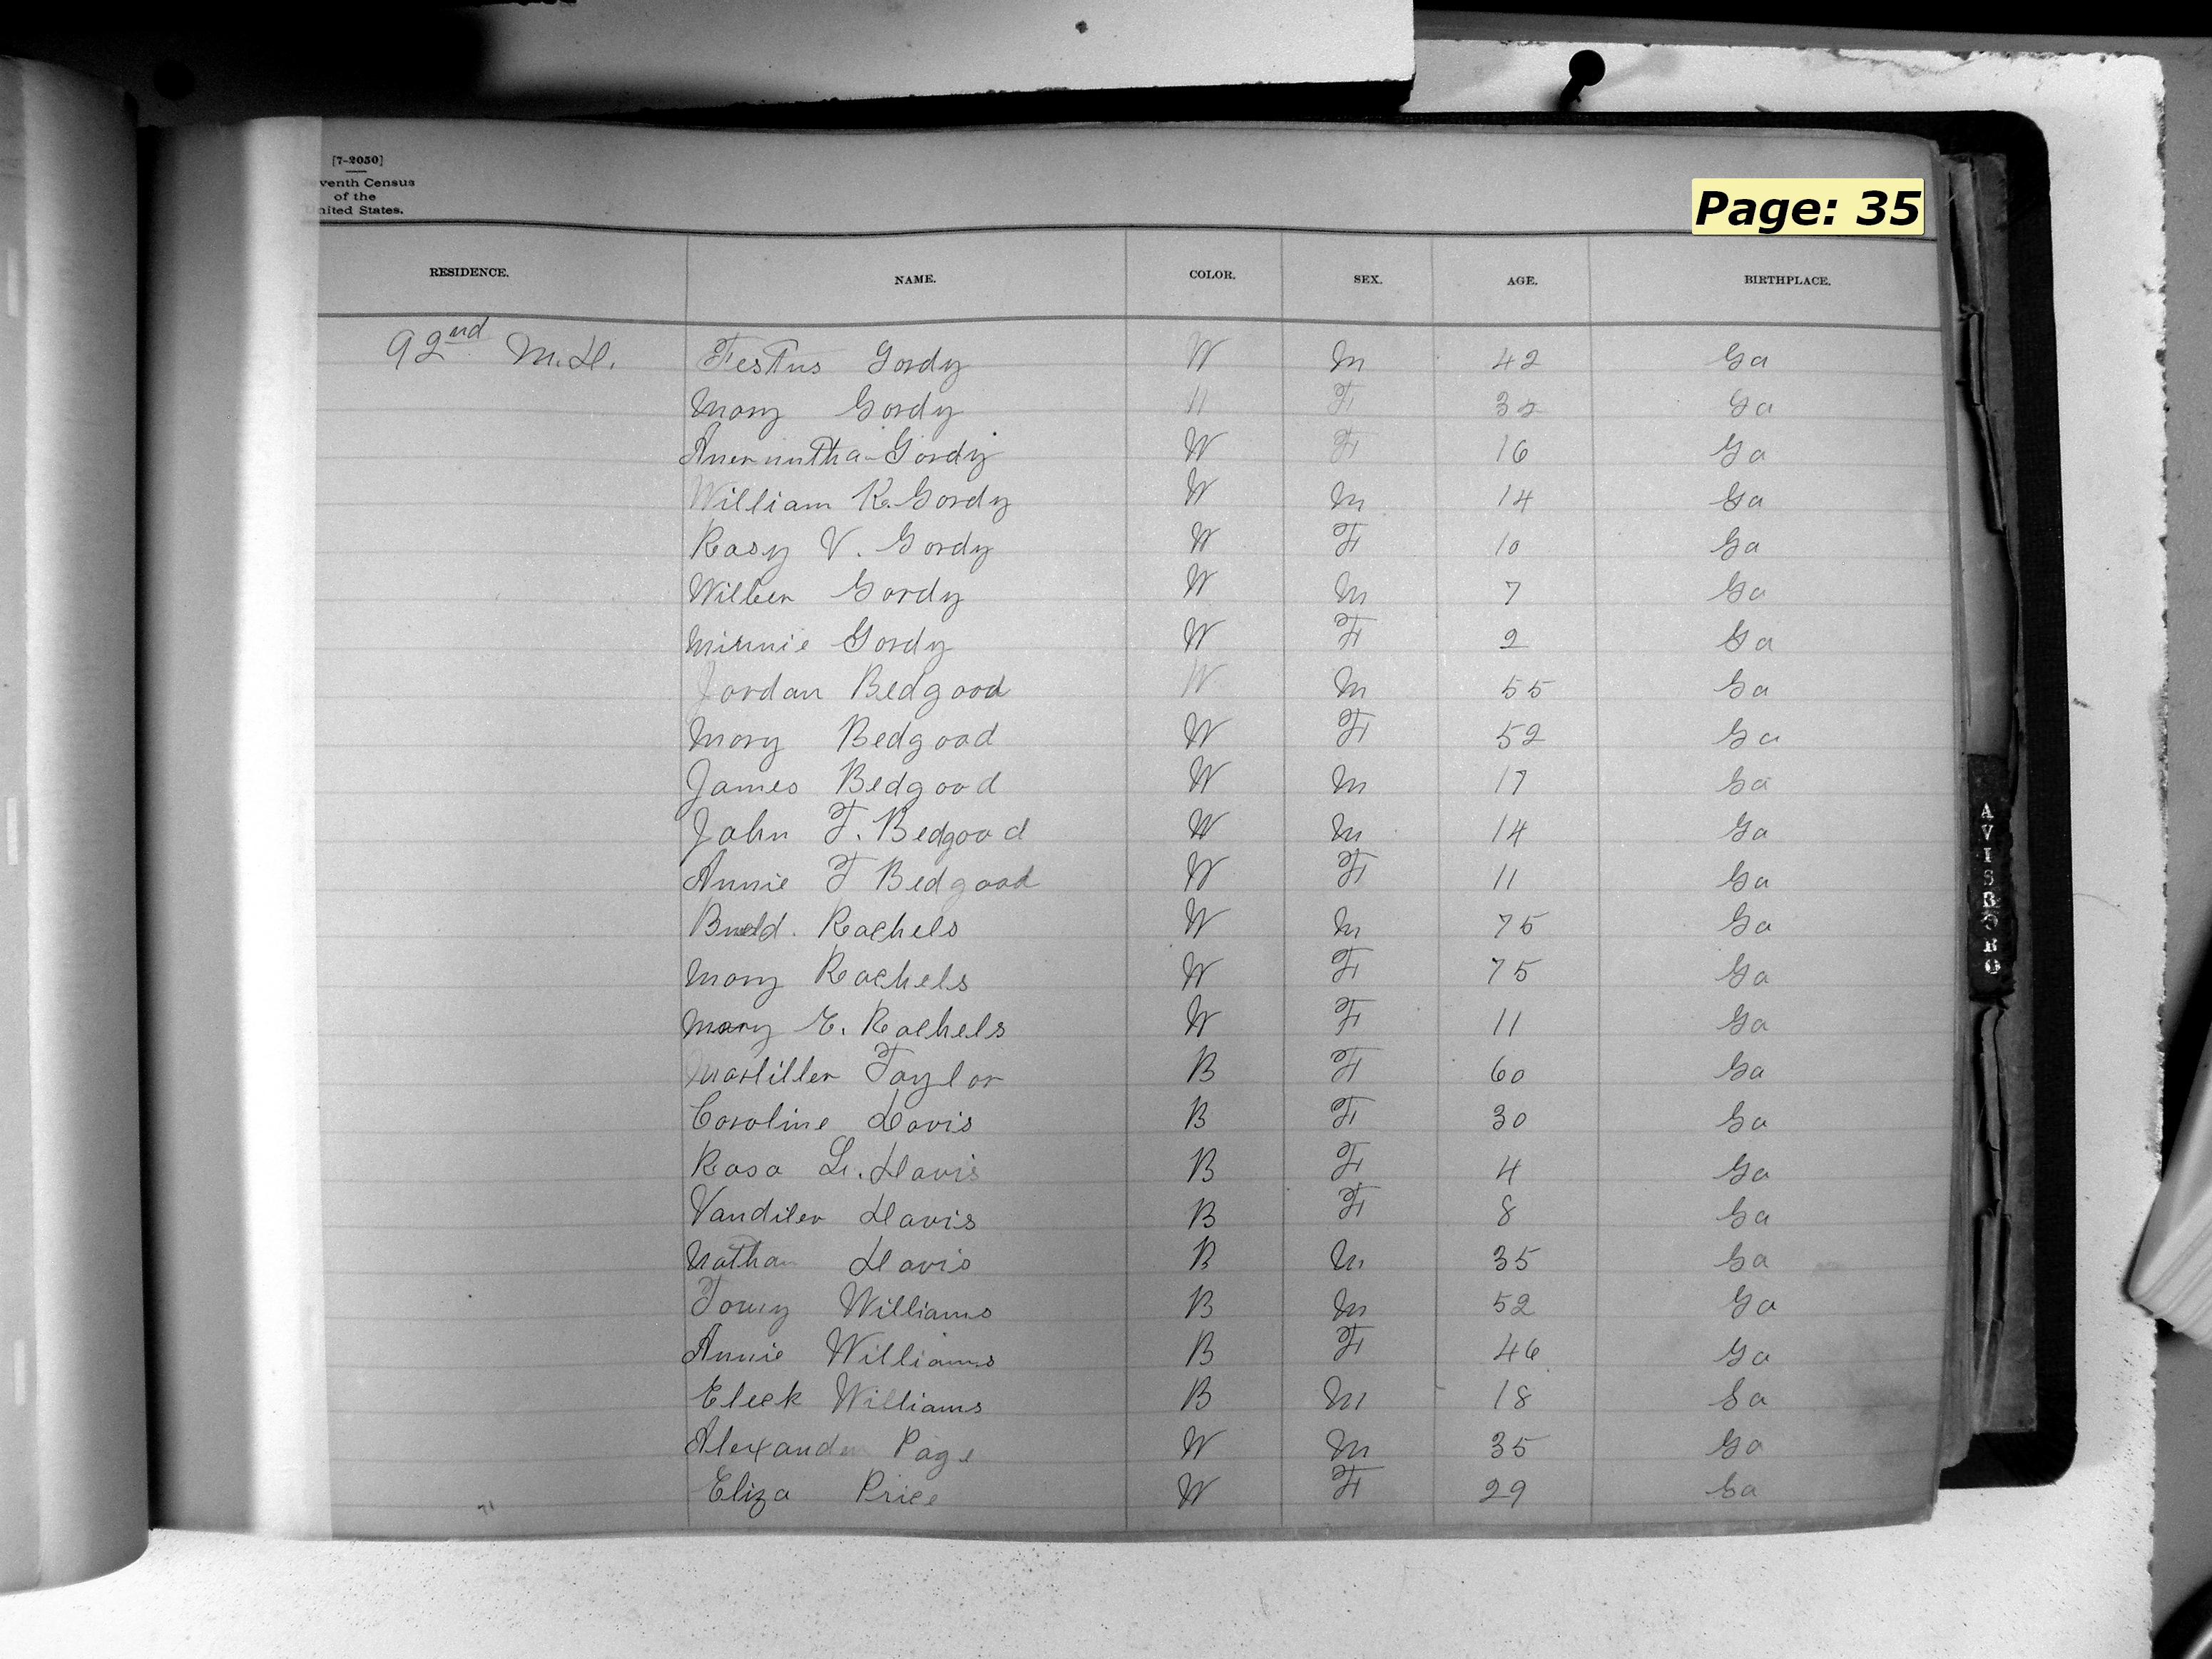 [7-2050]
venth Census
of the
nited States.
Page: 35
RESIDENCE. NAME. COLOR. SEX. AGE. BIRTHPLACE.
92nd M.D. Festus Gordy W M 42 Ga
Mary Gordy 11 F Ga
Gordy W F 16 Ga
William R. Gordy W M 14 Ga
Rosy V. Gordy W F 10 Ga
Wilber Gordy W M 7 Ga
Minnie Gordy W F 2 Ga
Jordan Bedgood W M 55 Ga
Mary Bedgood W F 52 Ga
James Bedgood W M 17 Ga
John F. Bedgood W M 14 Ga
Annie F Bedgood W F 11 Ga
Rachels W M 75 Ga
Mary Rachels W F 75 Ga
Mary E. Rachels W F 11 Ga
Taylor B F 60 Ga
Caroline Davis B F 30 Ga
Rosa L. Davis B F 4 Ga
Vandiler Davis B F 8 Ga
Nathan Davis B M 35 Ga
Williams B M 52 Ga
Annie Williams B F 46 Ga
Eleek Williams B M 18 Ga
Alexander Page W M 35 Ga
Eliza Price W F 29 Ga
71
AVISBORO